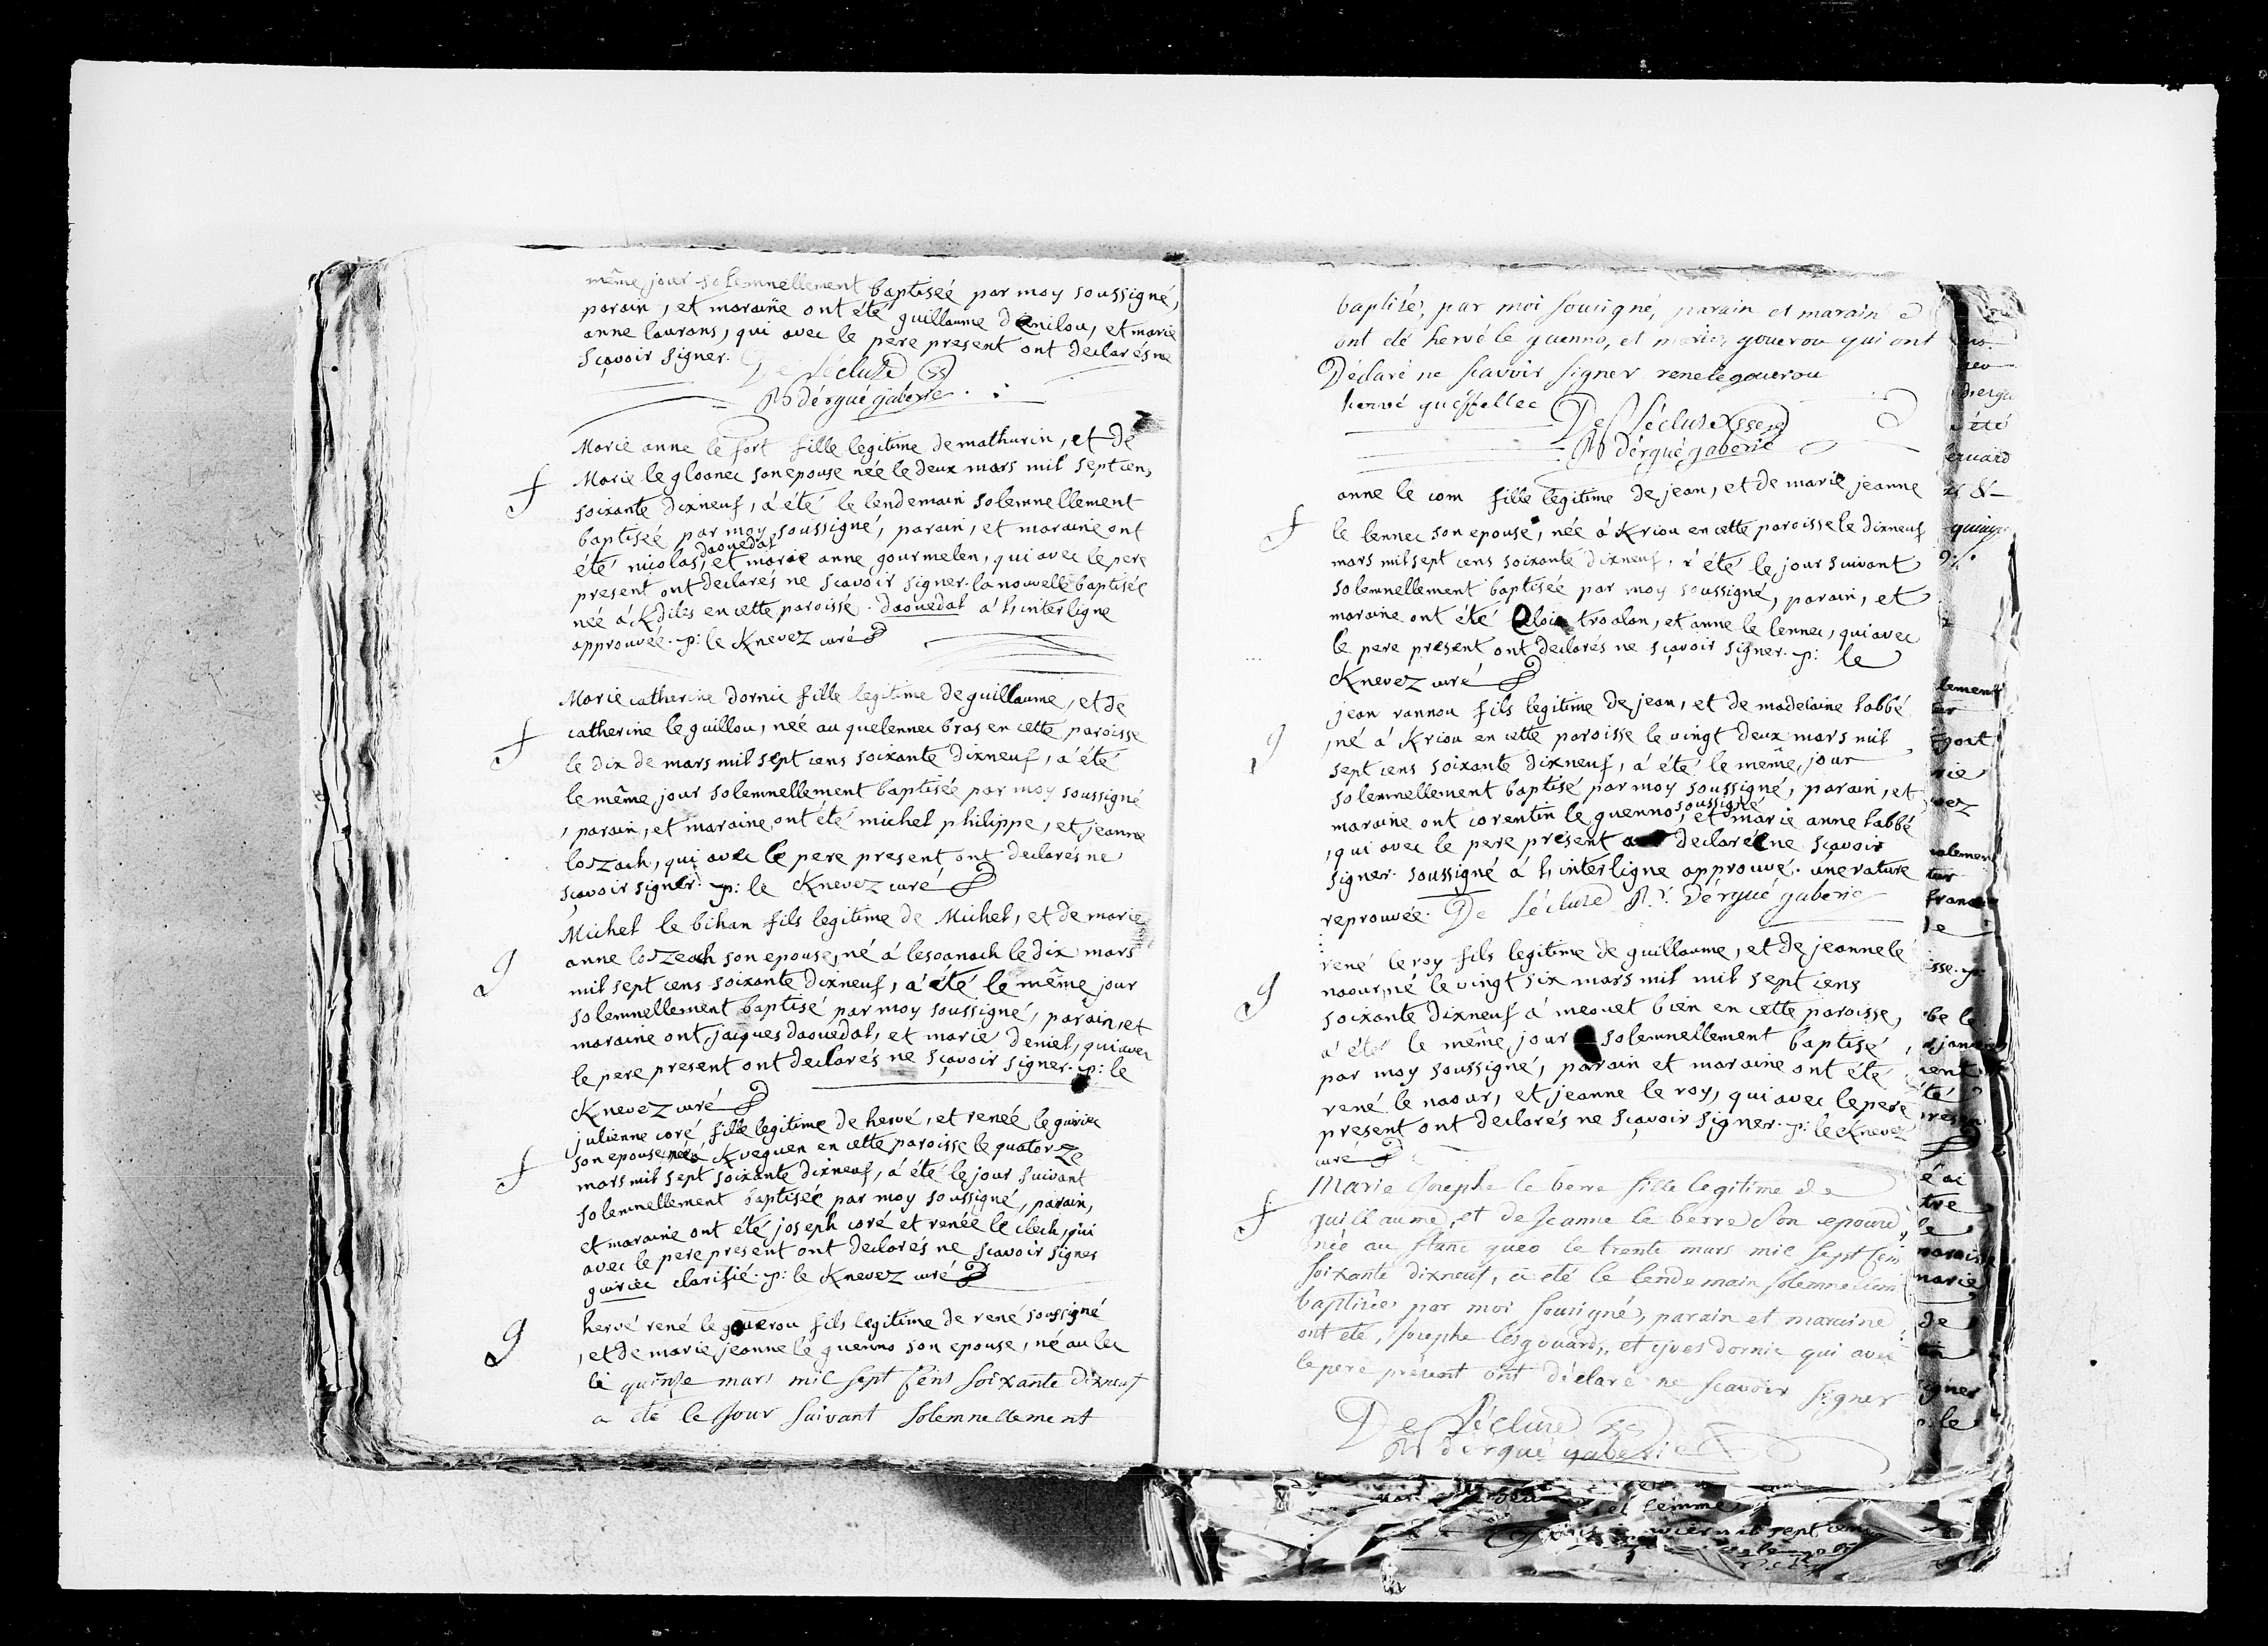 même jour solemnellement baptiseé par moy soussigné,
parain, et maraine ont été guillaume denilou, et marie
anne laurans, qui avec le pere present ont declarés ne
sçavoir signer. De Lécluse
R dérgué gaberic
Marie anne le fort fille legitime de mathurin, et de
f Marie le gloanec son epouse née le deux mars mil sept cens
soixante dixneuf, a été le lendemain solemnellement
baptiseé par moy soussigné, parain, et maraine ont
daouedal
été nicolas, et marie anne gourmelen, qui avec le pere
present ont declarés ne sçavoir signer. la nouvelle baptiseé
née á Kdiles en cette paroisse. daouedal á l'interligne
approuvée. p: le Knevez curé
Marie catherine dornic fille legitime de guillaume, et de
f catherine le guillou, neé au quelennec bras en cette paroisse
le dix de mars mil sept cens soixante dixneuf, a été
le même jour solemnellement baptiseé par moy soussigné
, parain, et maraine ont été michel philippe, et jeanne
lozach, qui avec le pere present ont declarés ne
sçavoir signer. p: le Knevez curé
Michel le bihan fils legitime de Michel, et de marie
g anne lozeach son epouse, né á lesoanach le dix mars
mil sept cens soixante dixneuf, a été le même jour
solemnellement baptisé par moy soussigné, parain, et
maraine ont jacques daouedal, et marie deniel, qui avec
le pere present ont declarés ne sçavoir signer. p: le
Knevez curé
julienne coré fille legitime de hervé, et reneé le guiriec
f son epouse née á Kveguen en cette paroisse le quatorze
mars mil sept soixante dixneuf, a été le jour suivant
solemnellement baptiseé par moy soussigné, parain,
et maraine ont été joseph coré et renée le clech, qui
avec le pere present ont declarés ne sçavoir signer
guiriec clarifié. p: le Knevez curé
g hervé rené le gouerou fils legitime de rené soussigné
, et de marie jeanne le guenno son epouse, né au lec
le quinze mars mil sept cens soixante dixneuf
a été le jour suivant solemnellement
baptisé, par moi sousigné, parain et marain
ont été hervé le guenno, et marie gouerou qui ont
Déclaré ne scavoir signer rene le gouerou
hervé gueffellec De Lécluse
R dérgué gaberic
anne le com fille legitime de jean, et de marie jeanne
f le lennec son epouse, née á Kriou en cette paroisse le dixneuf
mars mil sept cens soixante dixneuf, a été le jour suivant
solemnellement baptiseé par moy soussigné, parain, et
maraine ont été troalon, et anne le lennec, qui avec
le pere present ont declarés ne sçavoir signer. p: le
Knevez curé
g jean rannou fils legitime de jean, et de madelaine labbé
, né á Kriou en cette paroisse le vingt deux mars mil
sept cens soixante dixneuf, a été le même jour
solemnellement baptisé par moy soussigné, parain, et
soussigné
maraine ont corentin le guenno, et marie anne labbé
, qui avec le pere present declaré ne sçavoir
signer. soussigné á l'interligne approuvé. une rature
reprouvée. De Lécluse R. Dérgué gaberic
rené le roy fils legitime de guillaume, et de jeanne le
g naour, né le vingt six mars mil mil sept cens
soixante dixneuf á meouet bien en cette paroisse,
a été le même jour solemnellement baptisé,
par moy soussigné, parain et maraine ont été
rené le naour, et jeanne le roy, qui avec le pere
present ont declarés ne sçavoir signer. p: le Knevez
curé
Marie Josephe le berre fille legitime de
f guillaume, et de Jeanne le berre son epouse
née au stanc queo le trente mars mil sept cens
soixante dixneuf, a été le lendemain solemnellement
baptisée par moi sousigné, parain et maraine
ont été, Josephe lesgouard, et yves dornic qui avec
le pere présent ont déclaré ne scavoir signer
De Lécluse
R dérgué gaberic